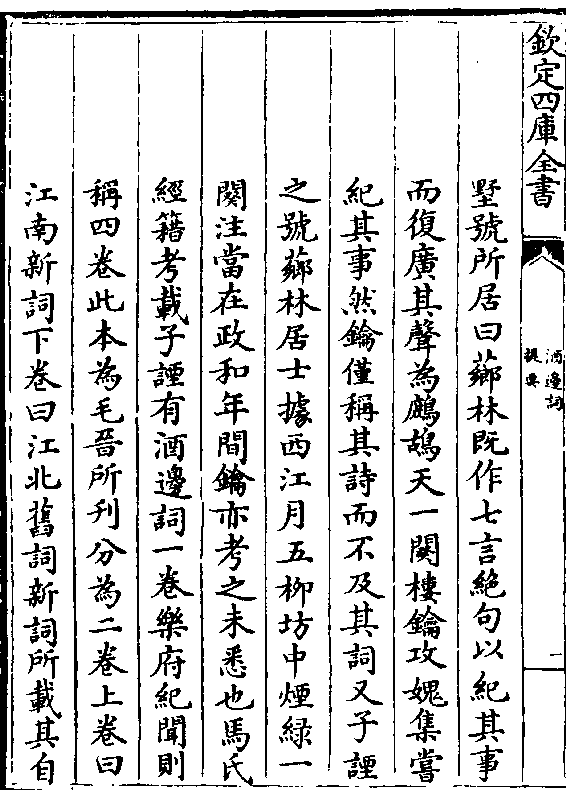 欽定四庫全書
酒邊詞
提要
二
墅號所居曰薌林既作七言絶句以紀其事
而復廣其聲為鷓鴣天一闋樓鑰攻媿集嘗
紀其事然鑰僅稱其詩而不及其詞又子諲
之號薌林居士據西江月五栁坊中煙緑一
闋注當在政和年間鑰亦考之未悉也馬氏
經籍考載子諲有酒邊詞一卷樂府紀聞則
稱四卷此本為毛晉所刊分為二卷上卷曰
江南新詞下卷曰江北舊詞新詞所載其自